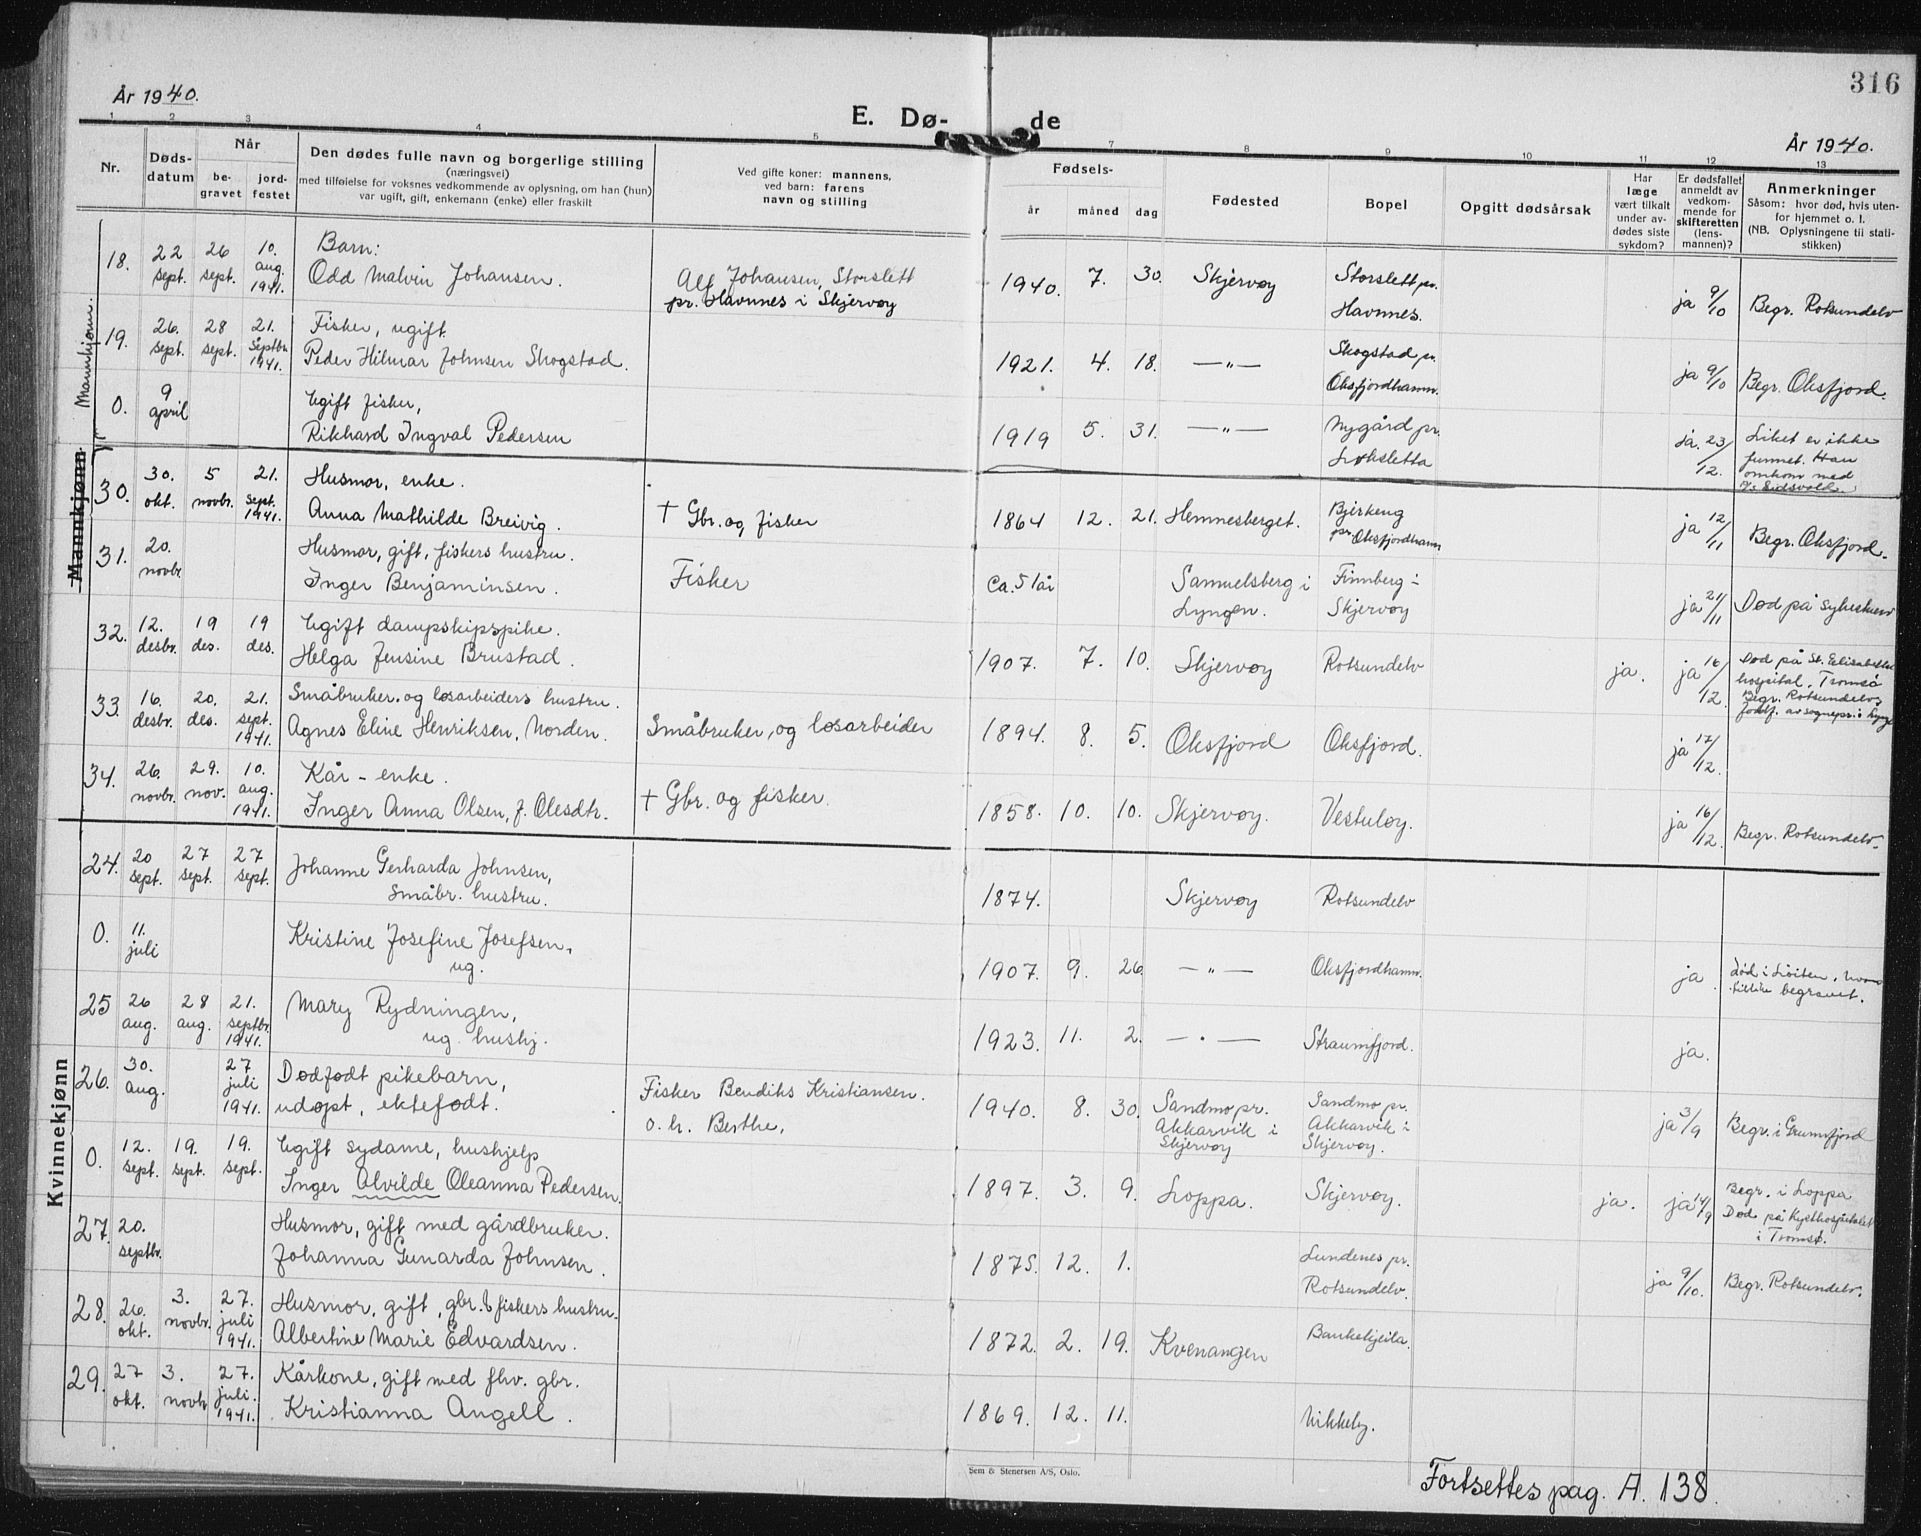 316
År 1940.
E. Dø- de
År 1940.
1 2 3 4 5 7 8 9 10 11 12 13
Nr.
Døds-
datum
Når
be-
gravet
jord-
festet
Den dødes fulle navn og borgerlige stilling
(næringsvei)
med tilføielse for voksnes vedkommende av oplysning, om han (hun)
var ugift, gift, enkemann (enke) eller fraskilt
Ved gifte koner: mannens,
ved barn: farens
navn og stilling
Fødsels-
år måned dag
Fødested
Bopel
Opgitt dødsårsak
Har
læge
vært tilkalt
under av-
dødes siste
sykdom?
Er dødsfallet
anmeldt av
vedkom-
mende for
skifteretten
(lens-
mannen)?
Anmerkninger
Såsom: hvor død, hvis uten-
for hjemmet o. l.
(NB. Oplysningene til stati-
stikken)
Mannkjønn.
Mannkjønn
18. 22 sept. 26 sept. 10. aug. 1941. Barn:
Odd Malvin Johansen.
Alf Johansen, Storslett
pr. Havnnes i Skjervøy
1940. 7. 30. Skjervøy
Storslett pr.
Havnnes.
ja 9/10 Begr. Rotsundelv
19. 26. sept. 28 sept. 21. Septbr. 1941. Fisker, ugift.
Peder Hilmar Johnsen Skogstad.
1921. 4. 18. —"—
Skogstad pr.
Oksfjordhamn.
ja 9/10 Begr. Oksfjord.
0. 9 april Ugift fisker,
Rikhard Ingval Pedersen
1919 5. 31. —"—
Nygård pr.
Loksletta
ja. 23/12.
Liket er ikke
funnet. Han
omkom med
D/s Eidsvold.
30. 30. okt. 5 novbr. 21. Sept. 1941. Husmor, enke.
Anna Mathilde Breivig.
† Gbr. og fisker
1864 12. 21. Hemnesberget.
Bjerkeng
pr. Oksfjordhamn
ja 12/11 Begr. Oksfjord.
31. 20. novbr. Husmor, gift, fiskers hustru.
Inger Benjaminsen.
Fisker
ca. 51 år
Samuelsberg i
Lyngen.
Finnberg i
Skjervøy
ja 21/11 Død på sykestuen
32. 12. desbr. 19 des. 19 des. Ugift dampskipspike.
Helga Jensine Brustad.
1907. 7. 10. Skjervøy Rotsundelv ja. ja 16/12
Død på St. Elisabeths
hospital, Tromsø
Begr. Rotsundelv,
Jordf. av sognepr. i Lyngen
33. 16. desbr. 20. des. 21. sept. 1941. Småbruker. og løsarbeiders hustru.
Agnes Eline Henriksen, Norden.
Småbruker, og løsarbeider
1894. 8. 5. Oksfjord Oksfjord. ja 17/12.
34. 26. novbr. 29. nov. 10. aug. 1941. Kår - enke.
Inger Anna Olsen, f. Olesdtr.
† Gbr. og fisker.
1858. 10. 10. Skjervøy. Vestuløy. ja 16/12. Begr. Rotsundelv.
Kvinnekjønn
24. 20 sept. 27 sept. 27 sept. Johanne Gerharda Johnsen,
Småbr. hustru.
1874. Skjervøy Rotsundelv
0. 11. juli Kristine Josefine Josefsen,
ug.
1907. 9. 26. —"— Oksfjordhamn. ja
død i Løiten, hvor
begravet.
25 26 aug. 28 aug. 21. septbr. 1941. Mary Rydningen,
ug. hushj.
1923. 11. 2. —"— Straumfjord. ja.
26. 30. aug. 27 juli 1941. Dødfødt pikebarn,
udøpt, ektefødt.
Fisker Bendiks Kristiansen.
o. h. Berthe.
1940. 8. 30.
Sandmo pr.
Akkarvik i
Skjervøy
Sandmo pr.
Akkarvik i
Skjervøy.
ja 3/9 Begr. i Grunnfjord
0. 12. sept. 19. sept. 19. sept. Ugift sydame, hushjelp
Inger Alvilde Oleanna Pedersen.
1897. 3. 9. Loppa. Skjervøy. ja. ja 14/9
Begr. i Loppa
Død på Kysthospitalet
i Tromsø.
27. 20. septbr. Husmor, gift med gårdbruker.
Johanna Gunarda Johnsen.
1875. 12. 1.
Lundenes pr.
Rotsundelv.
ja 9/10. Begr. Rotsundelv.
28. 26. okt. 3. novbr. 27. juli 1941. Husmor, gift, gbr. & fiskers hustru.
Albertine Marie Edvardsen.
1872. 2. 19. Kvenangen Bankekjeila.
29. 27 okt. 3. novbr 27. juli. 1941. Kårkone, gift med fhv. gbr.
Kristianna Angell.
1869. 12. 11. Nikkeby.
Sem & Stenersen A/S, Oslo.
Fortsettes pag. A. 138.